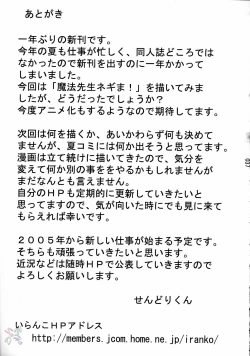 あとがき
一年ぶりの新刊です。
今年の夏も仕事が忙しく、同人誌どころでは
なかったので新刊を出すのに一年かかって
しまいました。
今回は「魔法先生ネギま！」を描いてみま
したが、どうだったでしょうか？
今度アニメ化もするようなので期待してます。
次回は何を描くか、あいかわらず何も決めて
ませんが、夏コミには何か出そうと思ってます。
漫画は立て続けに描いてきたので、気分を
変えて何か別の事ををやるかもしれませんが
まだなんとも言えません。
自分のＨＰも定期的に更新していきたいと
思ってますので、気が向いた時にでも見に来て
もらえれば幸いです。
２００５年から新しい仕事が始まる予定です。
そちらも頑張っていきたいと思います。
近況などは随時ＨＰで公表していきますので
よろしくお願いします。
せんどりくん
いらんこＨＰアドレス
http://members.jcom.home.ne.jp/iranko/